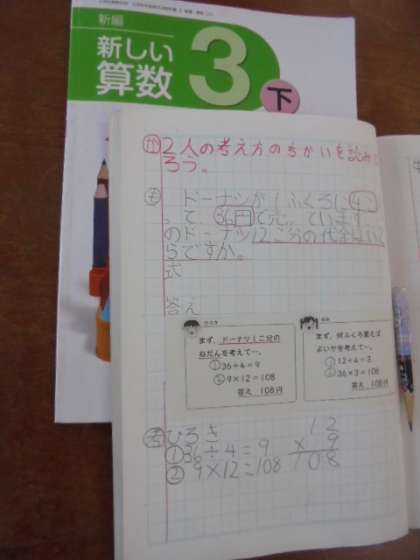 新編
新しい
算数
3
下
2人の考え方のちがいを読みと
ろう。
も ドーナツが1ふくろに4こ
って、36円で売っています。
のドーナツ12こ分の代金はいく
らですか。
式
答え
まず、ドーナツ1こ分の
ねだんを考えて…。
①36÷4=9
②9×12=108
答え 108円
まず、何ふくろ買えば
よいかを考えて…。
①12÷4=3
②36×3=108
答え 108円
ひろき
①36÷4=9
②9×12=108
12
×9
108